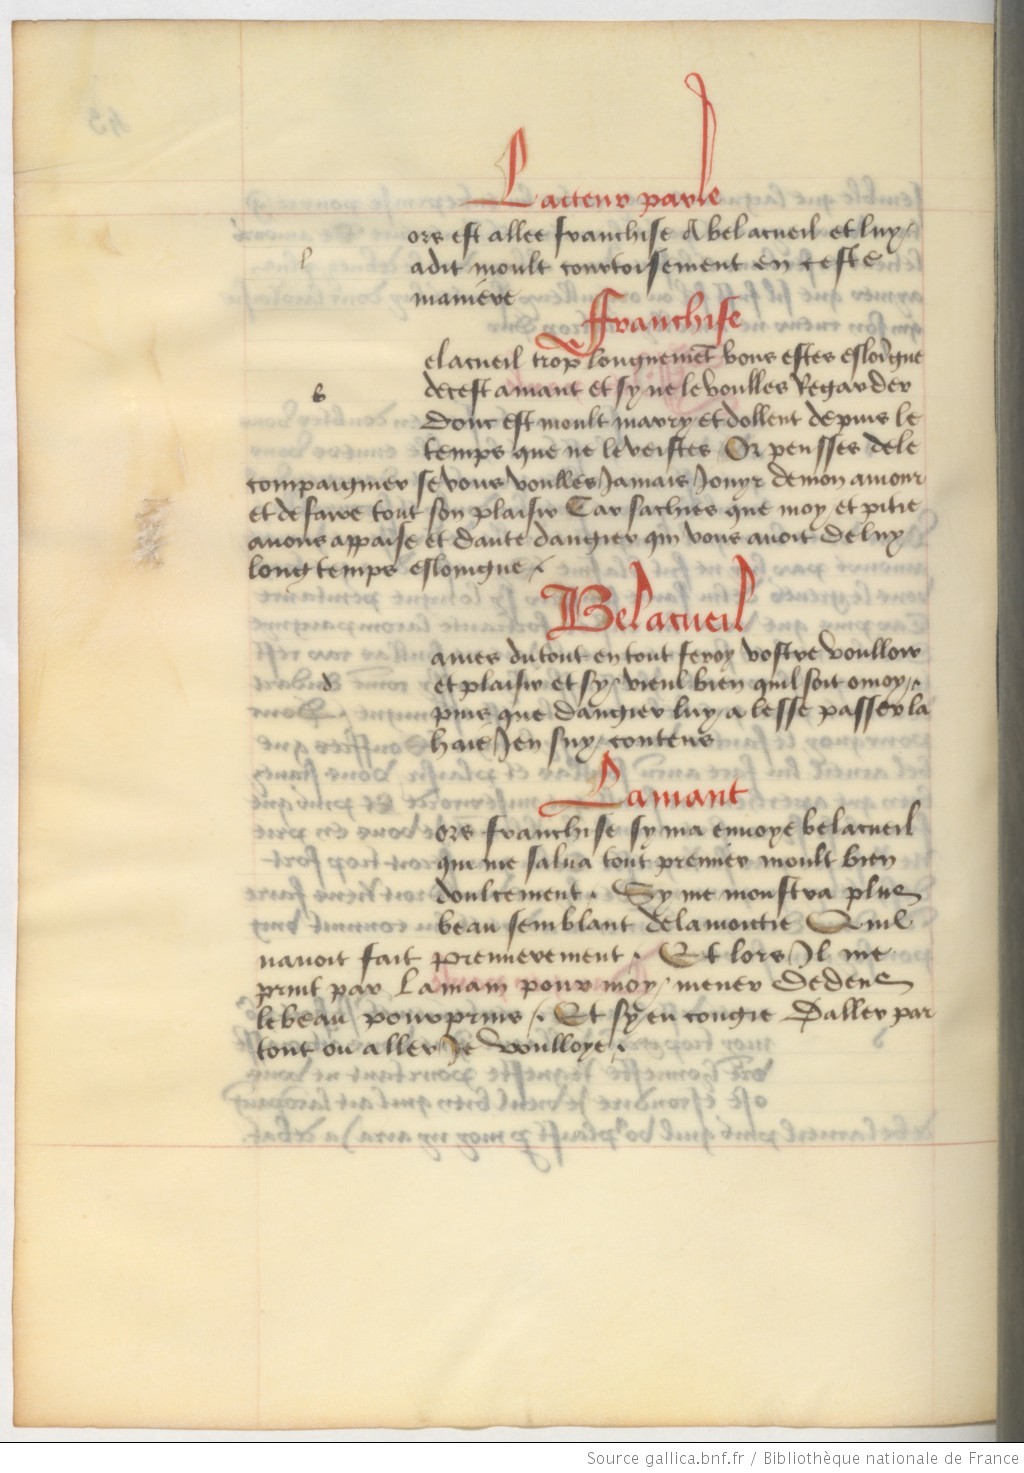 Lacteur parle
ors est allee franchise A belacueil et luy
l
adit moult courtoisement en ceste
maniere
ffranchise
elacueil trop longuement vous estes esloigne
decest amant et sy ne le voulles Regarder
b
donc est moult marry et dollent depuis le
temps que ne le veistes Or pensses dele
compaigner se vous voulles Jamais Jouyr demon amour
et defaire tout son plaisir Car saches que moy et pitie
avons appaise et dante dangier qui vous avoit deluy
long temps esloingne
Belacueil
ames du tout en tout feroy vostre voulloir
d
et plaisir et sy vieul bien quil soit o moy
puis que dangier luy a lesse passer la
haie Jen suy contens
Lamant
ors franchise sy ma envoye belacueil
qui me salua tout premier moult bien
doulcement. Sy me monstra plus
beau semblant delamoictie Quil
navoit fait premierement. Et lors Jl me
print par Lamain pour moy mener dedens
lebeau pourprins. Et sy eu congie Daller par
tout ou aller Je voulloye.
Source gallica.bnf.fr / Bibliothèque nationale de France